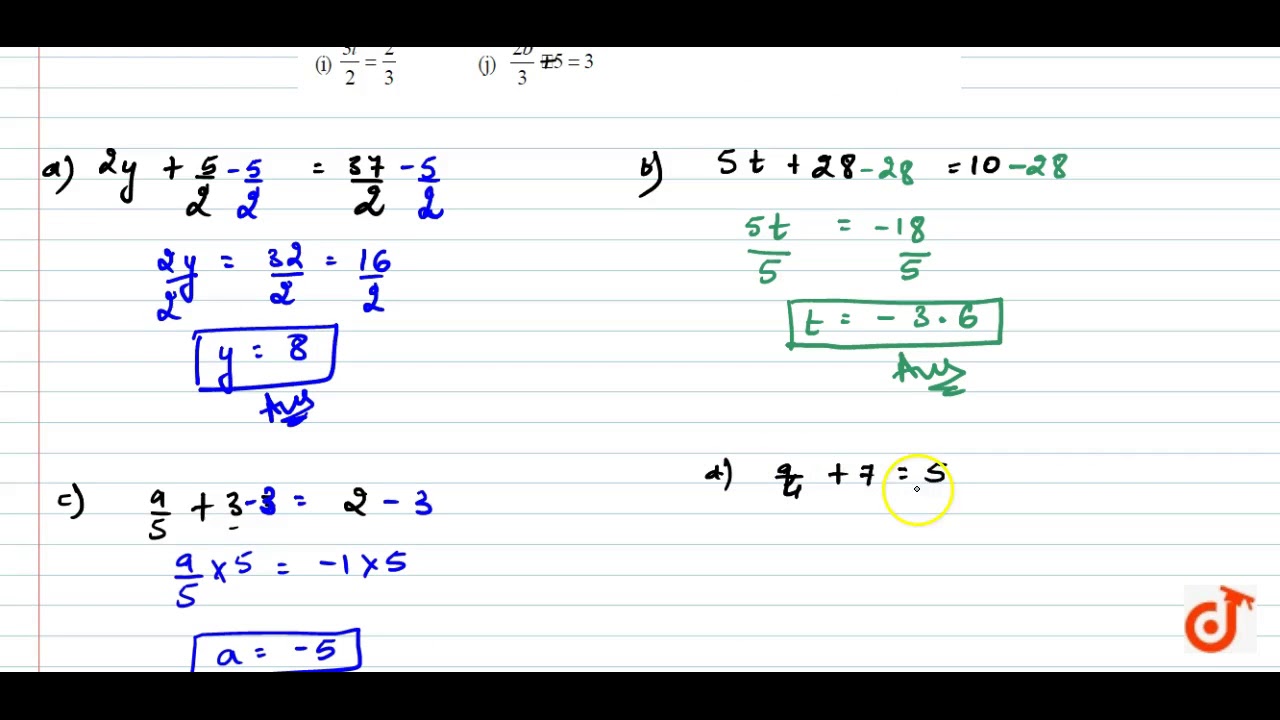 (i) 5l/2 = 2/3 (j) 2b/3 - 5 = 3
a) 2y + 5/2 - 5/2 = 37/2 - 5/2
2y/2 = 32/2 = 16/2
y = 8
Ans
b) 5t + 28 - 28 = 10 - 28
5t/5 = -18/5
t = -3.6
Ans
c) a/5 + 3 - 3 = 2 - 3
a/5 × 5 = -1 × 5
a = -5
d) q/4 + 7 = 5